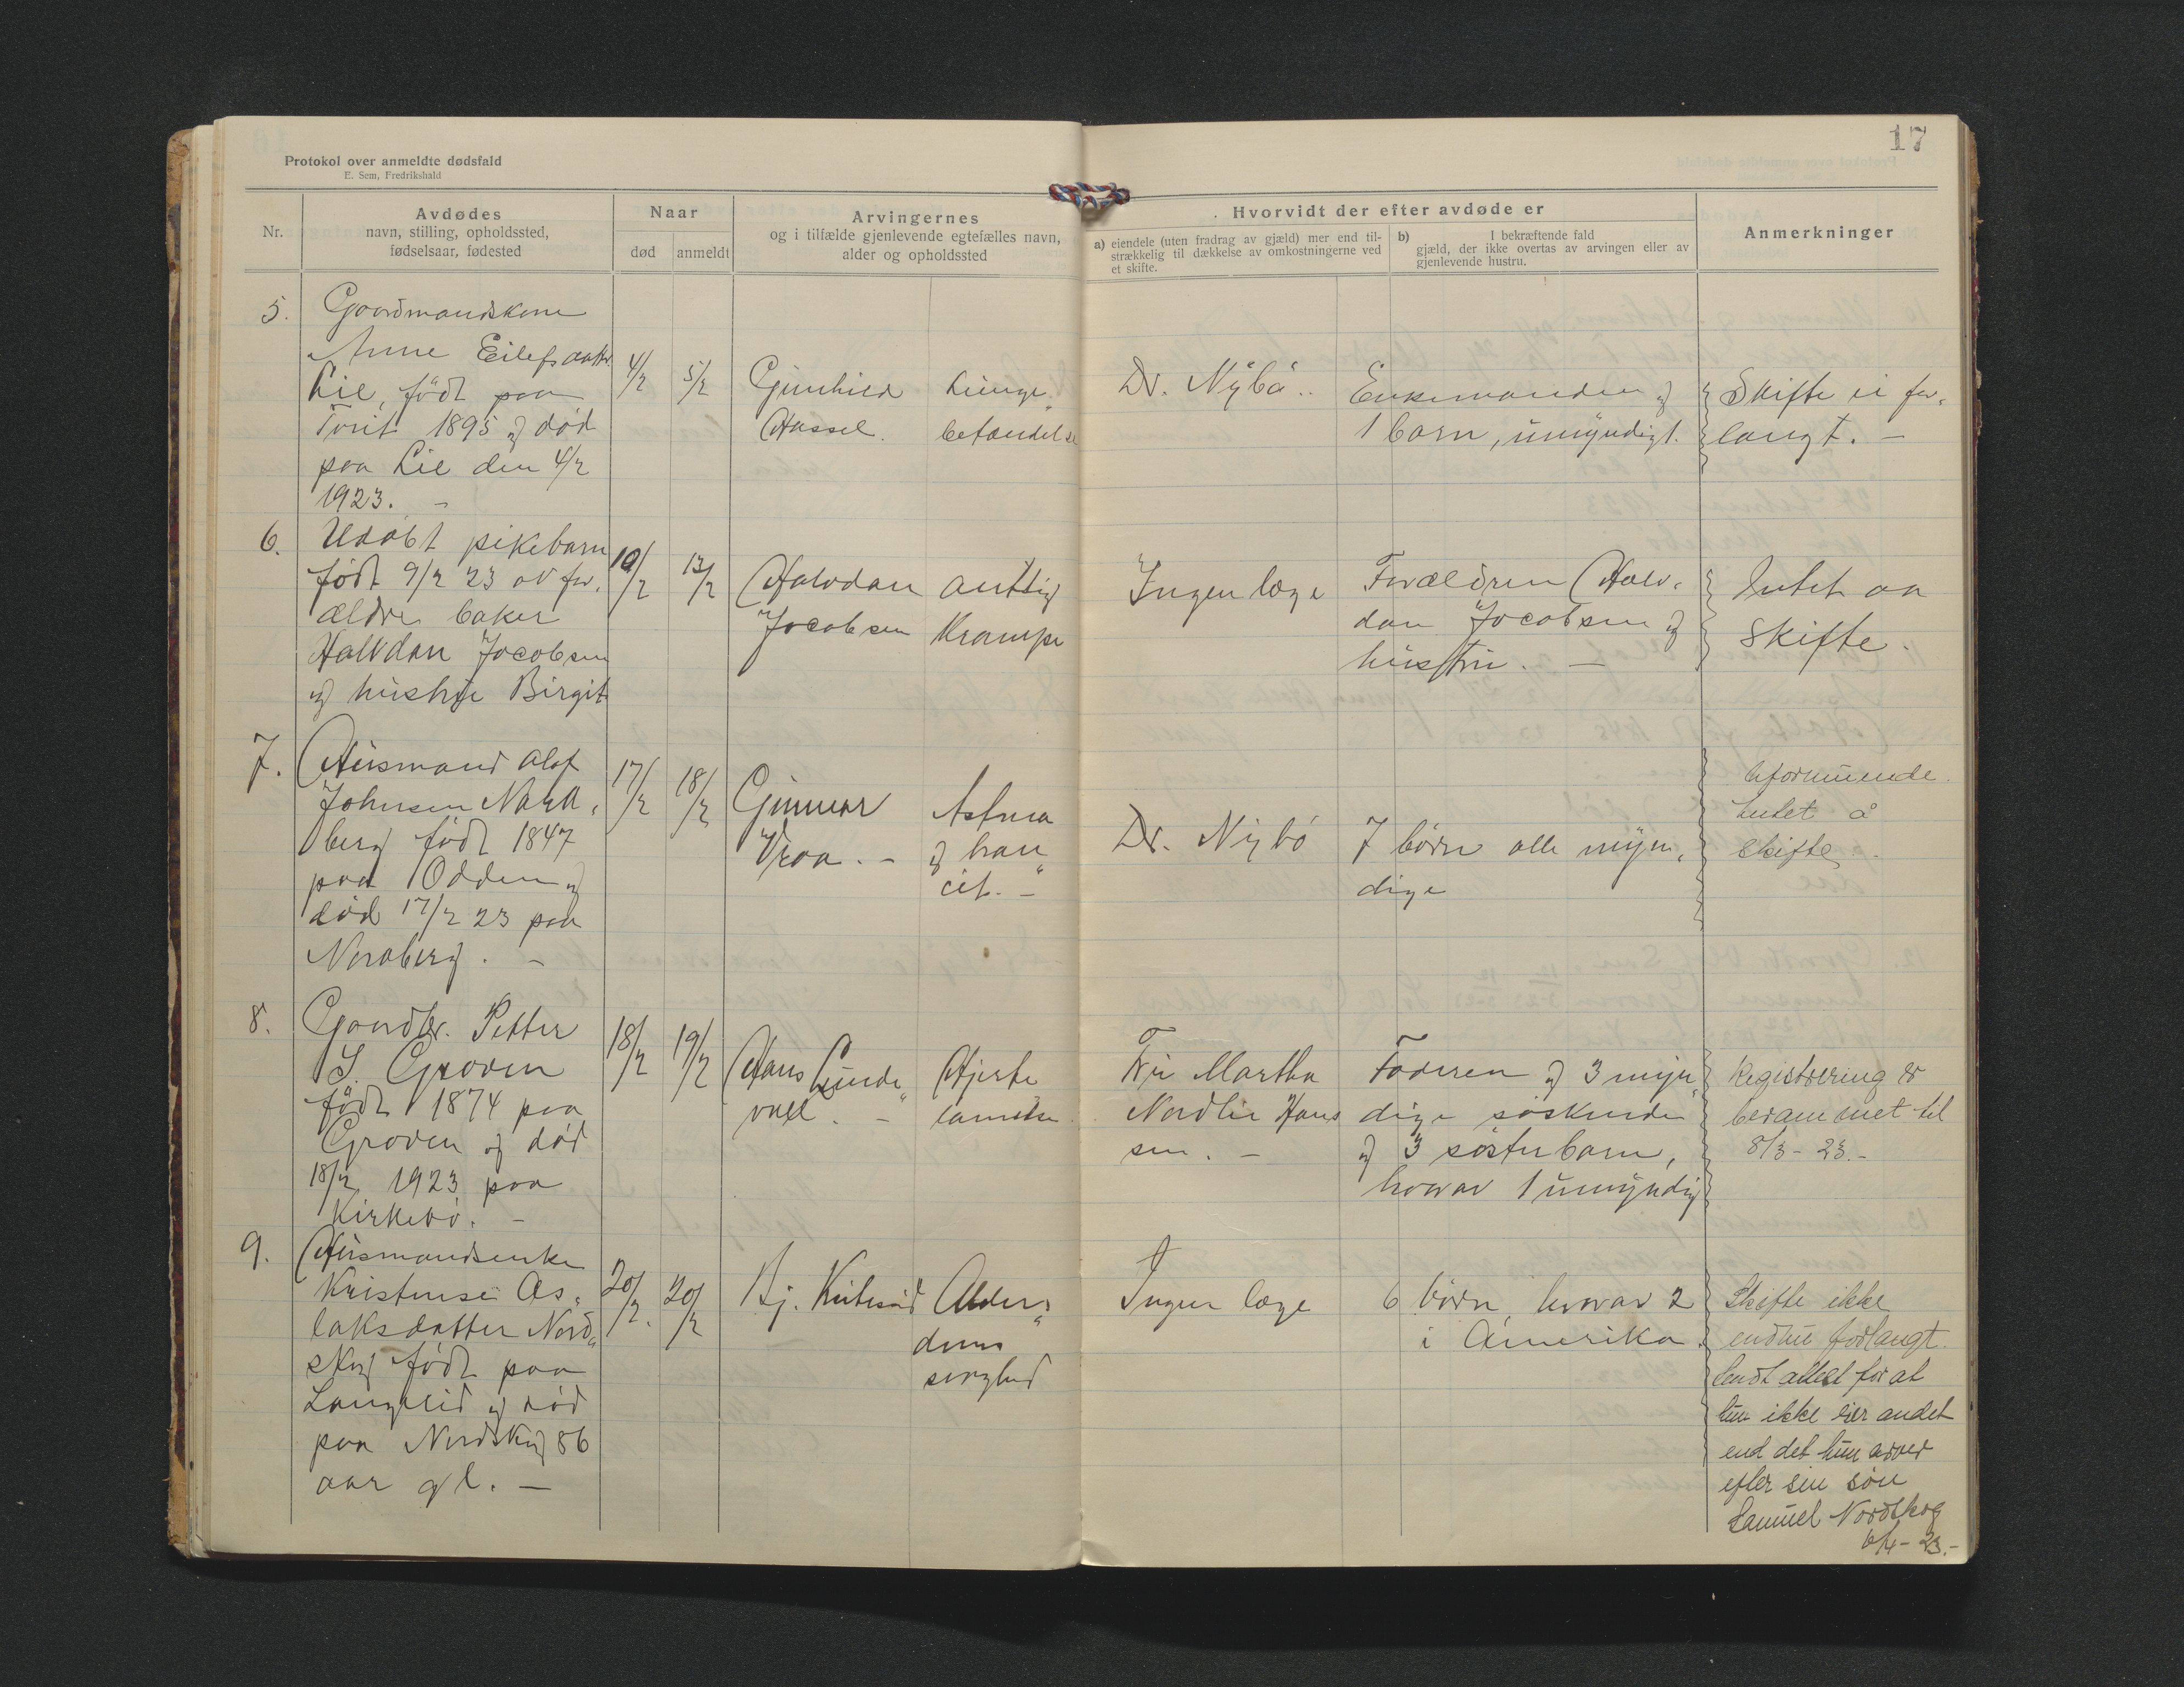 17
Protokol over anmeldte dødsfald
E. Sem, Fredrikshald
Nr.
Avdødes
navn, stilling, opholdssted,
fødselsaar, fødested
Naar
død
anmeldt
Arvingernes
og i tilfælde gjenlevende egtefælles navn,
alder og opholdssted
Hvorvidt der efter avdøde er
a) eiendele (uten fradrag av gjæld) mer end til-
strækkelig til dækkelse av omkostningerne ved
et skifte.
b) I bekræftende fald
gjæld, der ikke overtas av arvingen eller av
gjenlevende hustru.
Anmerkninger
5.
Gaardmandskone
Anne Eilefsdatter
Lie, født paa
1895 og død
paa Lie den 4/2
1923. –
4/2
5/2
Gunhild
Hassel.
Lunge-
betændelse
Dr. Nybö.
Enkemanden og
1 barn, umyndigt.
Skifte ei for-
langt. –
6.
Udøbt pikebarn
født 9/2 23 av for-
ældre baker
Halvdan Jacobsen
og hustru Birgit
10/2
13/2
Halvdan
Jacobsen
Krampe
Ingen læge
Forældren Halv-
dan Jacobsen og
hustru. –
Intet aa
skifte.
7.
Husmand Olaf
Johnsen Nord-
berg født 1847
paa Odden og
død 17/2 23 paa
Nordberg. –
17/2
18/2
Gunnar
Vraa. –
Astma
og bron-
cit. –
Dr. Nybö
7 børn alle myn-
dige
Uformuende.
Intet å
skifte.
8.
Gaardbr. Petter
S. Groven
født 1874 paa
Groven og død
18/2 1923 paa
Kirkebö. –
18/2
19/2
Hans Lunde-
vall. –
Hjerte
lamelse.
Fru Martha
Nordlie Hans
sen. –
Faderen og 3 myn-
dige søskende
og 3 søsterbarn,
hvorav 1 umyndig
Registrering er
berammet til
8/3 - 23. –
9.
Husmandsenke
Kristense As-
laksdatter Nord-
skog født paa
Langelid og død
paa Nordskog 86
aar gl. –
20/2.
20/2
Alder-
doms
svaghed
Ingen læge
6 børn, hvorav 2
i Amerika.
Skifte ikke
endnu forlangt.
Sendt attest for at
hun ikke eier andet
end det hun arver
efter sin søn
Samuel Nordskog
6/4 - 23. –